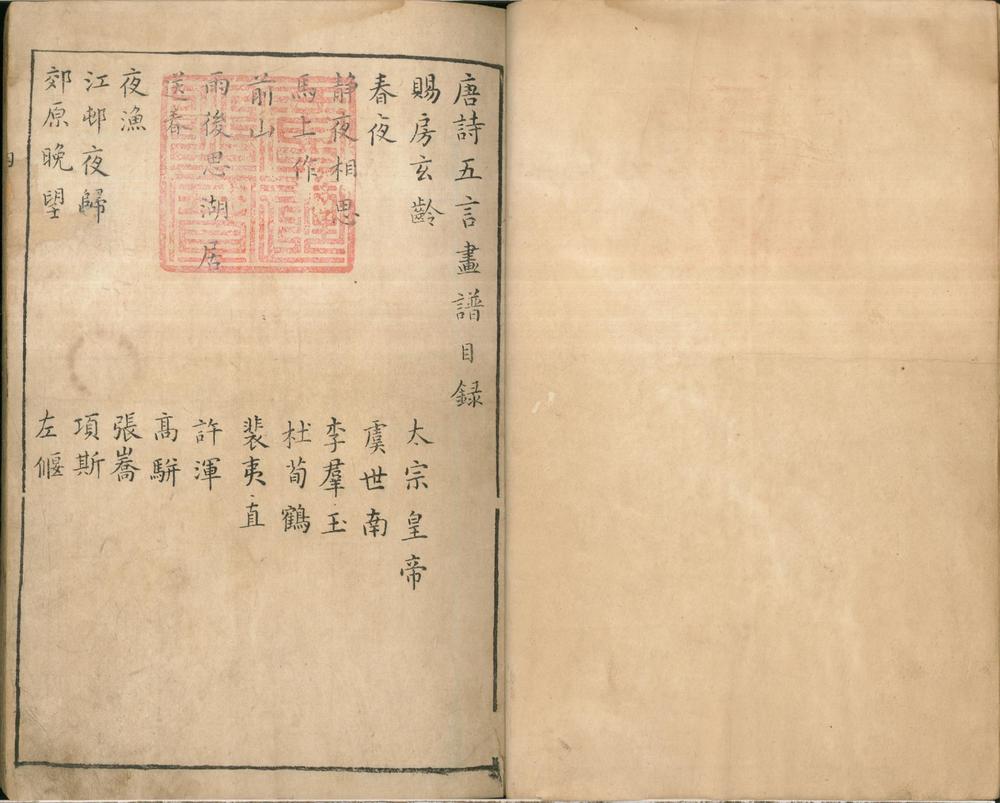 唐詩五言畫譜目録
賜房玄齡 太宗皇帝
春夜 虞世南
静夜相思 李羣玉
馬上作 杜荀鶴
前山 裴夷直
雨後思湖居 許渾
送春 髙駢
夜漁 張喬
江邨夜歸 項斯
郊原晚望 左偃